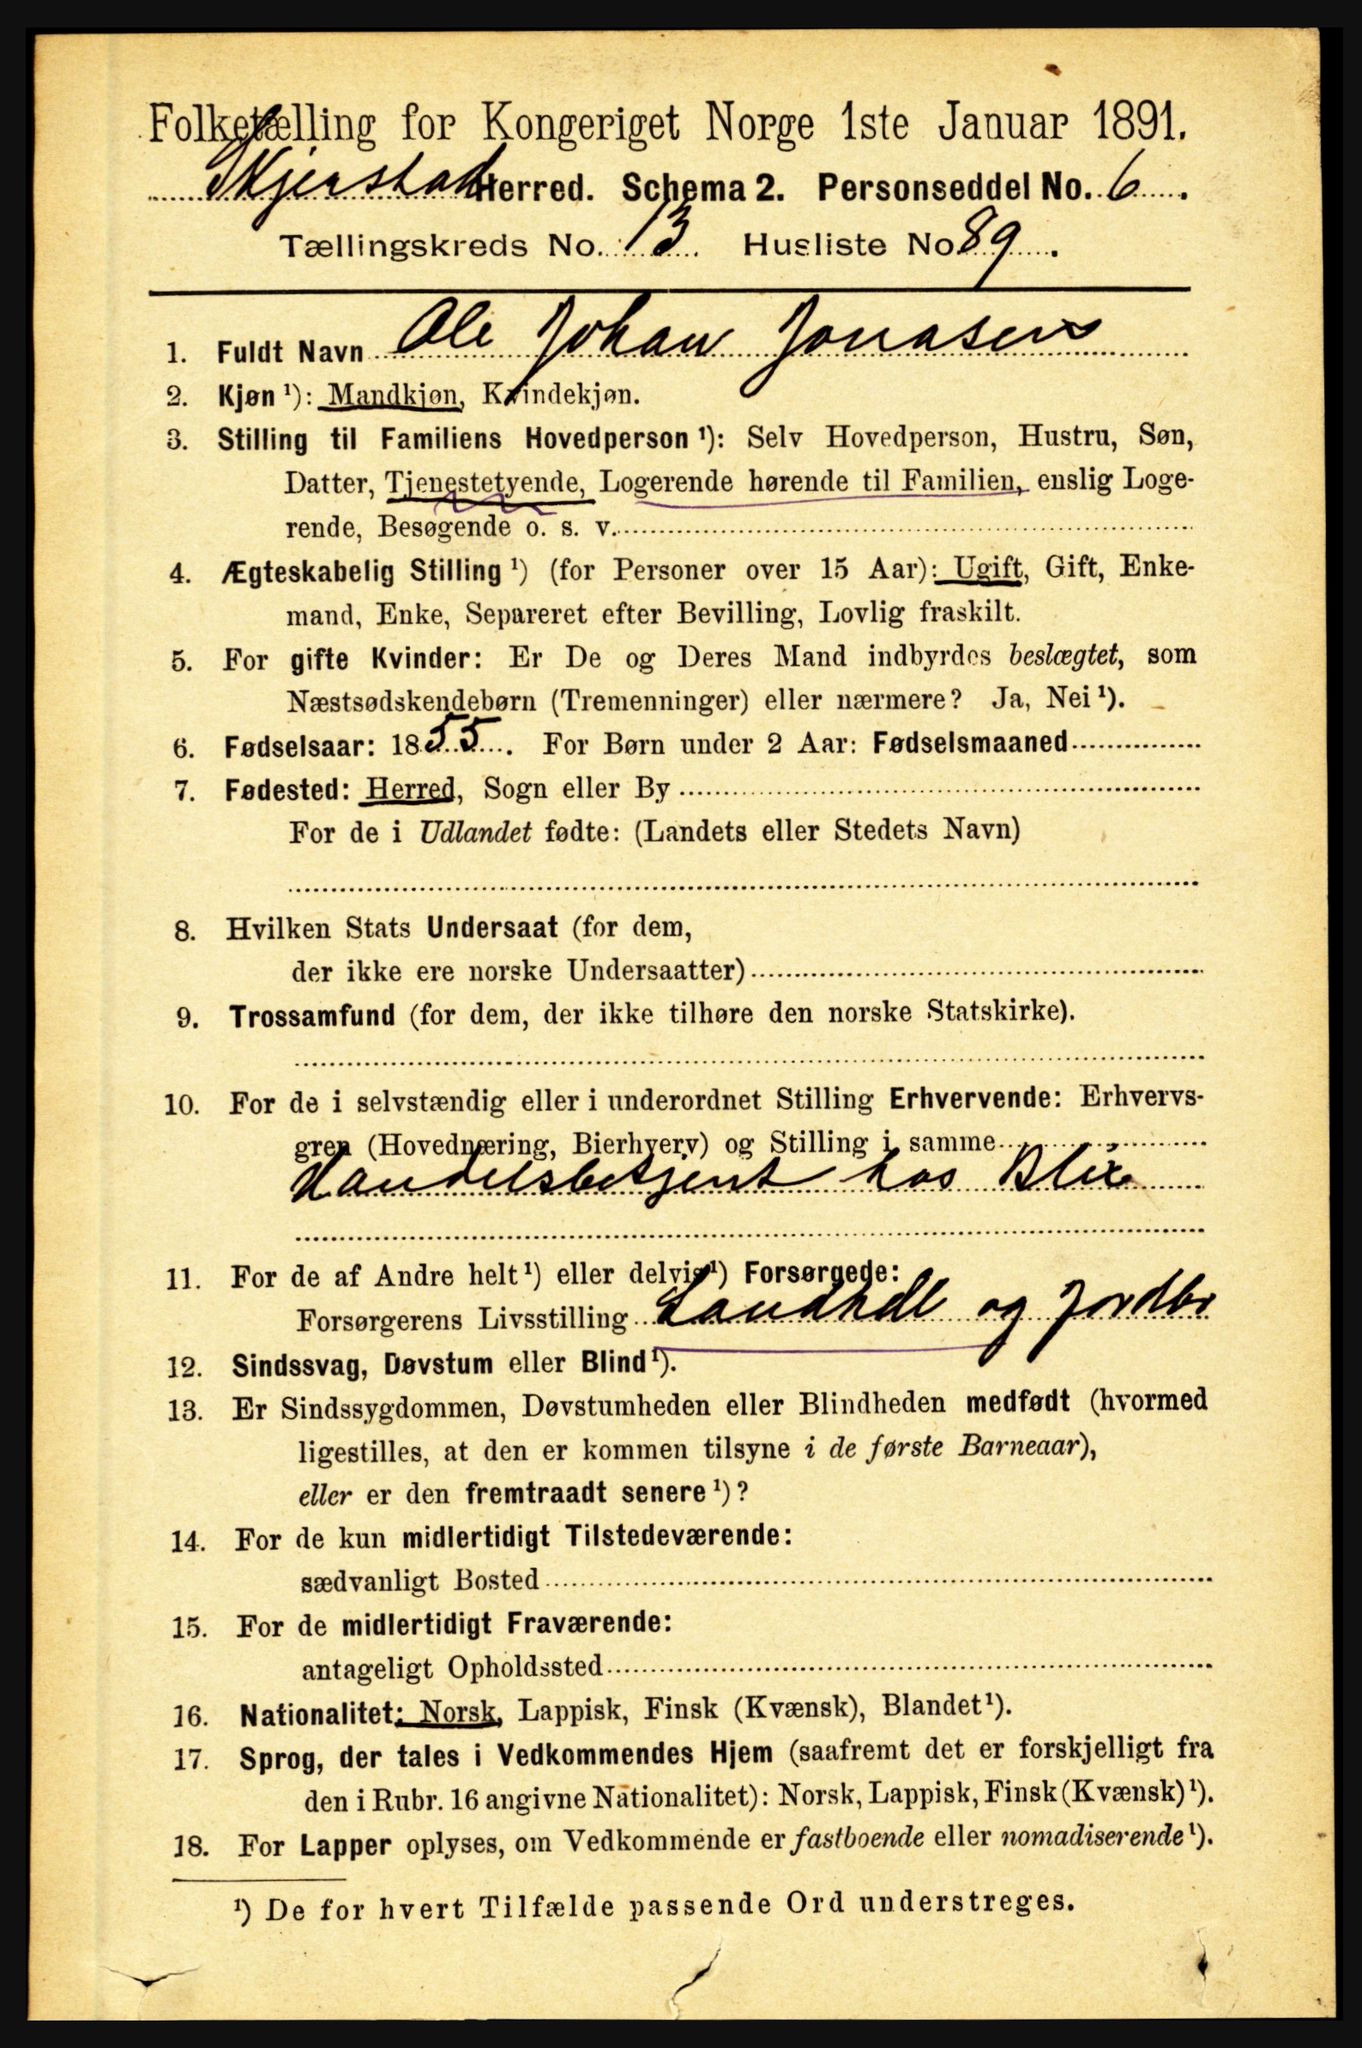 Folketælling for Kongeriget Norge 1ste Januar 1891.
Skjerstad Herred. Schema 2. Personseddel No. 6.
Tællingskreds No. 13 Husliste No 89.
1. Fuldt Navn Ole Johan Jonasen
2. Kjøn ¹): Mandkjøn, Kvindekjøn.
3. Stilling til Familiens Hovedperson ¹): Selv Hovedperson, Hustru, Søn,
Datter, Tjenestetyende, Logerende hørende til Familien, enslig Loge-
rende, Besøgende o. s. v.
4. Ægteskabelig Stilling ¹) (for Personer over 15 Aar): Ugift, Gift, Enke-
mand, Enke, Separeret efter Bevilling, Lovlig fraskilt.
5. For gifte Kvinder: Er De og Deres Mand indbyrdes beslægtet, som
Næstsødskendebørn (Tremenninger) eller nærmere? Ja, Nei ¹).
6. Fødselsaar: 1855. For Børn under 2 Aar: Fødselsmaaned
7. Fødested: Herred, Sogn eller By
For de i Udlandet fødte: (Landets eller Stedets Navn)
8. Hvilken Stats Undersaat (for dem,
der ikke ere norske Undersaatter)
9. Trossamfund (for dem, der ikke tilhøre den norske Statskirke).
10. For de i selvstændig eller i underordnet Stilling Erhvervende: Erhvervs-
gren (Hovednæring, Bierhverv) og Stilling i samme
Handelsbetjent hos Blix
11. For de af Andre helt ¹) eller delvis ¹) Forsørgede:
Forsørgerens Livsstilling Landhdl og Jordbr
12. Sindssvag, Døvstum eller Blind ¹).
13. Er Sindssygdommen, Døvstumheden eller Blindheden medfødt (hvormed
ligestilles, at den er kommen tilsyne i de første Barneaar),
eller er den fremtraadt senere ¹)?
14. For de kun midlertidigt Tilstedeværende:
sædvanligt Bosted
15. For de midlertidigt Fraværende:
antageligt Opholdssted
16. Nationalitet: Norsk, Lappisk, Finsk (Kvænsk), Blandet ¹).
17. Sprog, der tales i Vedkommendes Hjem (saafremt det er forskjelligt fra
den i Rubr. 16 angivne Nationalitet): Norsk, Lappisk, Finsk (Kvænsk) ¹).
18. For Lapper oplyses, om Vedkommende er fastboende eller nomadiserende ¹).
¹) De for hvert Tilfælde passende Ord understreges.